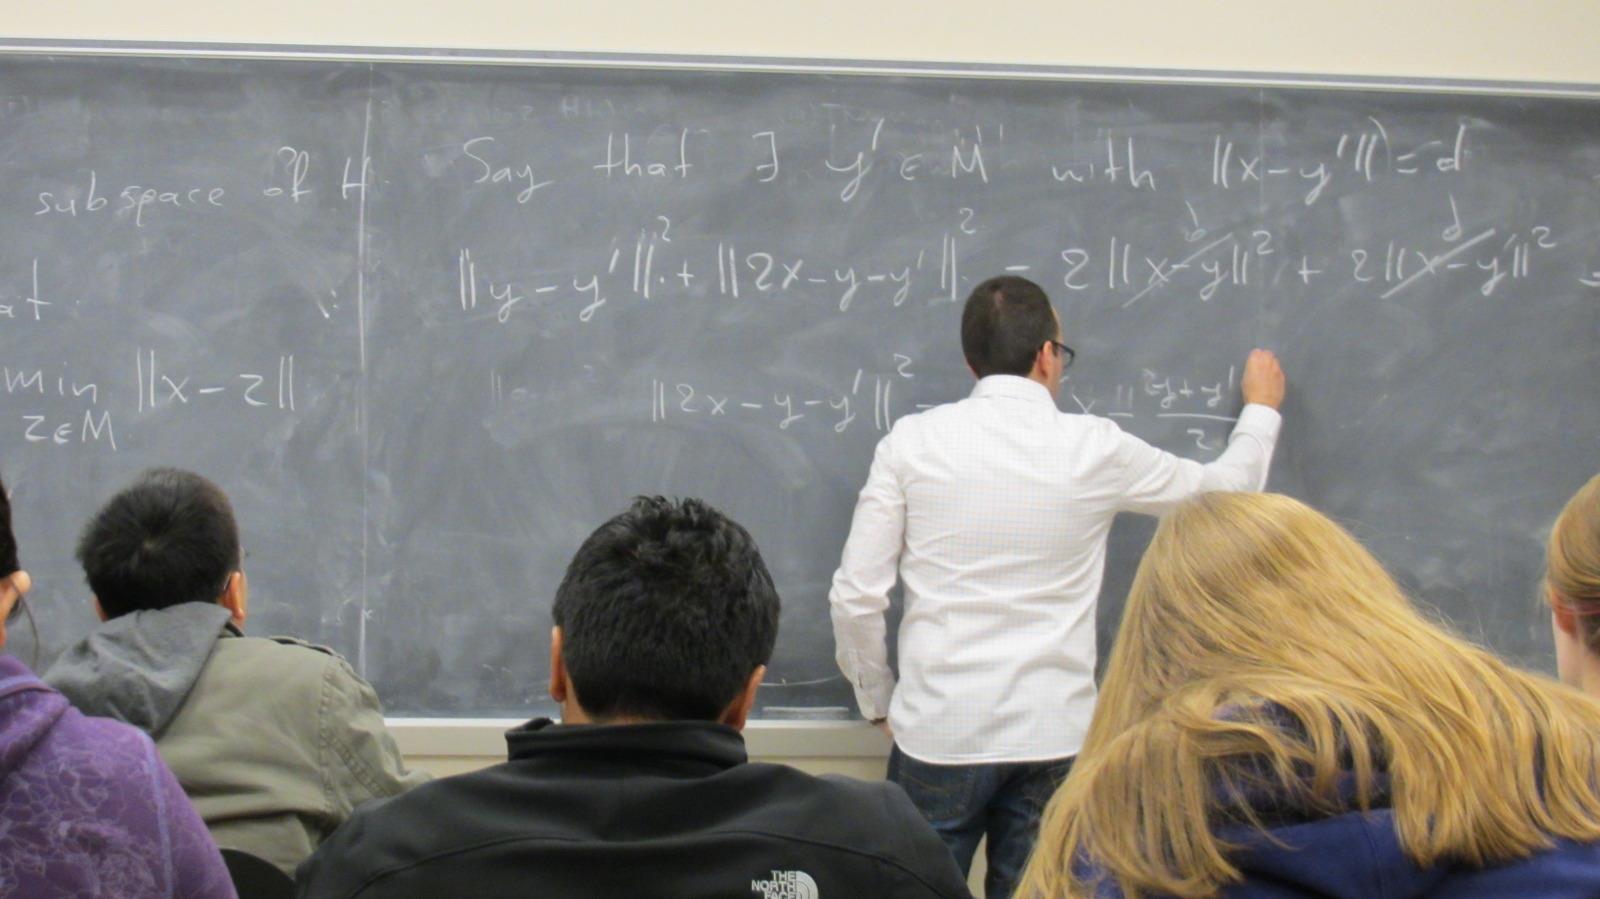 subspace of H
at
min ||x-z||
z∈M
Say that ∃ y' ∈ M with ||x-y'|| = d
||y-y'||² + ||2x-y-y'||² = 2||x-y||² + 2||x-y'||² =
d d
||2x-y-y'||² = x - y+y'
2
THE
NORTH
FACE